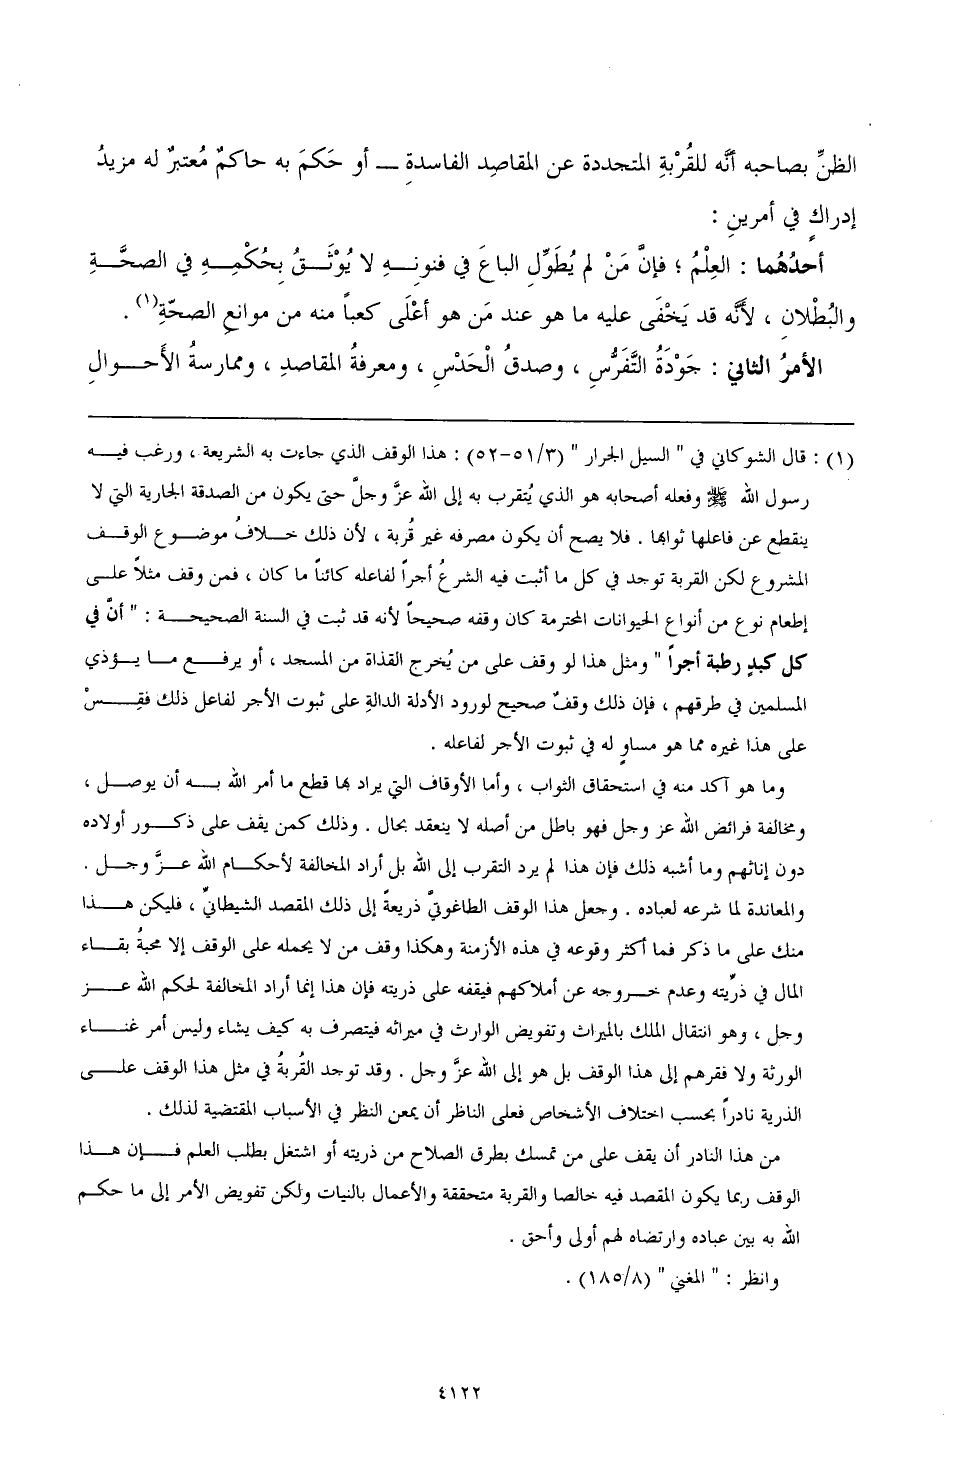 الظنِّ بصاحبه أنَّه للقُرْبةِ المتجددة عن المقاصد الفاسدةِ ــ أو حَكمَ به حاكمٌ مُعتبرٌ له مزيدُ
إدراكٍ في أمرينِ :
أحدُهُما : العِلْمُ ؛ فإنَّ مَنْ لم يُطَوِّلِ الباعَ في فنونِـهِ لا يُوْثَـقُ بِحُكْمِـهِ في الصحَّـةِ
والبُطْلانِ ، لأنَّه قد يَخْفَى عليه ما هو عند مَن هو أعْلَى كعباً منه من موانعِ الصحّةِ(١) .
الأمرُ الثاني : جَوْدَةُ التَّفَرُّسِ ، وصدقُ الْحَدْسِ ، ومعرفةُ المقاصدِ ، وممارسةُ الأحـوالِ
(١) : قال الشوكاني في " السيل الجرار " (٥١/٣-٥٢) : هذا الوقف الذي جاءت به الشريعة ، ورغب فيـه
رسول الله ﷺ وفعله أصحابه هو الذي يُتقرب به إلى الله عزَّ وجلَّ حتى يكون من الصدقة الجارية التي لا
ينقطع عن فاعلها ثوابها . فلا يصح أن يكون مصرفه غير قُربة ، لأن ذلك خـلافُ موضـوع الوقـف
المشروع لكن القربة توجد في كل ما أثبت فيه الشرعُ أجراً لفاعله كائناً ما كان ، فمن وقف مثلاً علـى
إطعام نوع من أنواع الحيوانات المحترمة كان وقفه صحيحاً لأنه قد ثبت في السنة الصحيحـة : " أنَّ في
كل كبدٍ رطبة أجراً " ومثل هذا لو وقف على من يُخرج القذاة من المسجد ، أو يرفـع مـا يـؤذي
المسلمين في طرقهم ، فإن ذلك وقفٌ صحيح لورود الأدلة الدالةِ على ثبوت الأجر لفاعل ذلك فقِـسْ
على هذا غيره مما هو مساوٍ له في ثبوت الأجر لفاعله .
وما هو آكد منه في استحقاق الثواب ، وأما الأوقاف التي يراد بها قطع ما أمر الله بـه أن يوصـل ،
ومخالفة فرائض الله عز وجل فهو باطل من أصله لا ينعقد بحال . وذلك كمن يقف على ذكـور أولاده
دون إناثهم وما أشبه ذلك فإن هذا لم يرد التقرب إلى الله بل أراد المخالفة لأحكـام الله عـزَّ وجـل .
والمعاندة لما شرعه لعباده . وجعل هذا الوقف الطاغوتيَّ ذريعةً إلى ذلك المقصد الشيطانيِّ ، فليكن هـذا
منك على ما ذكر فما أكثر وقوعه في هذه الأزمنة وهكذا وقف من لا يحمله على الوقف إلا محبةُ بقـاء
المال في ذرِّيته وعدم خـروجه عن أملاكهم فيقفه على ذريته فإن هذا إنما أراد المخالفة لحكم الله عـز
وجل ، وهو انتقال الملك بالميراث وتفويض الوارث في ميراثه فيتصرف به كيف يشاء وليس أمر غنـاء
الورثة ولا فقرهم إلى هذا الوقف بل هو إلى الله عزَّ وجل . وقد توجد القُربةُ في مثل هذا الوقف علـى
الذرية نادراً بحسب اختلاف الأشخاص فعلى الناظر أن يمعن النظر في الأسباب المقتضية لذلك .
من هذا النادر أن يقف على من تمسك بطرق الصلاح من ذريته أو اشتغل بطلب العلم فـإن هـذا
الوقف ربما يكون المقصد فيه خالصا والقربة متحققة والأعمال بالنيات ولكن تفويض الأمر إلى ما حكـم
الله به بين عباده وارتضاه لهم أولى وأحق .
وانظر : " المغني " (١٨٥/٨) .
٤١٢٢